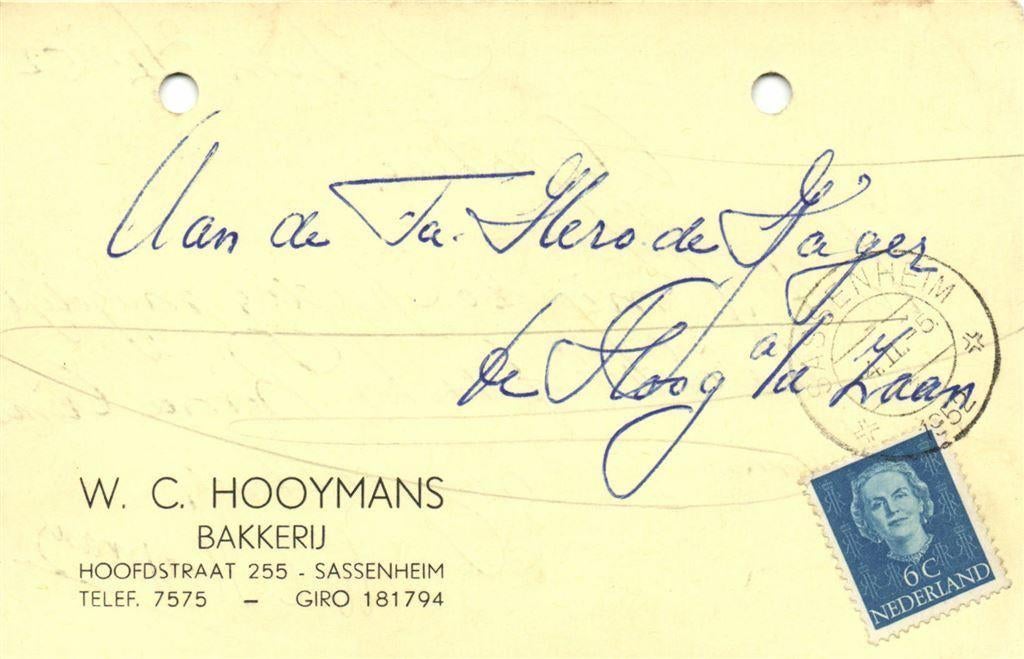 Aan de Fa. Hero de Jager
de Hoog a/d Zaan
SASSENHEIM
1952
W. C. HOOYMANS
BAKKERIJ
HOOFDSTRAAT 255 - SASSENHEIM
TELEF. 7575 — GIRO 181794
6 C
NEDERLAND